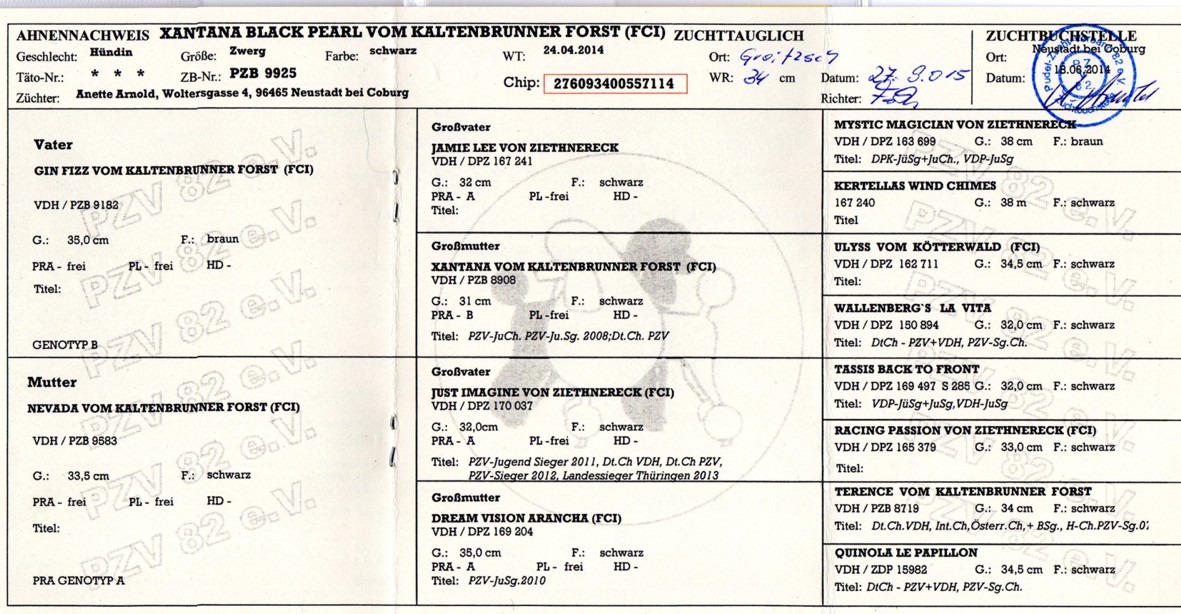 AHNENNACHWEIS XANTANA BLACK PEARL VOM KALTENBRUNNER FORST (FCI) ZUCHTTAUGLICH
Geschlecht: Hündin Größe: Zwerg Farbe: schwarz WT: 24.04.2014 Ort: Groitzsch
Täto-Nr.: * * * ZB-Nr.: PZB 9925 Chip: 276093400557114 WR: 34 cm Datum: 27.9.015
Züchter: Anette Arnold, Woltersgasse 4, 96465 Neustadt bei Coburg Richter:
ZUCHTBUCHSTELLE
Ort: Neustadt bei Coburg
Datum: 18.06.2014
Vater
GIN FIZZ VOM KALTENBRUNNER FORST (FCI)
VDH / PZB 9182
G.: 35,0 cm F.: braun
PRA - frei PL - frei HD -
Titel:
GENOTYP B
Mutter
NEVADA VOM KALTENBRUNNER FORST (FCI)
VDH / PZB 9583
G.: 33,5 cm F.: schwarz
PRA - frei PL - frei HD -
Titel:
PRA GENOTYP A
Großvater
JAMIE LEE VON ZIETHNERECK
VDH / DPZ 167 241
G.: 32 cm F.: schwarz
PRA - A PL -frei HD -
Titel:
Großmutter
XANTANA VOM KALTENBRUNNER FORST (FCI)
VDH / PZB 8908
G.: 31 cm F.: schwarz
PRA - B PL -frei HD -
Titel: PZV-JuCh. PZV-Ju.Sg. 2008;Dt.Ch. PZV
Großvater
JUST IMAGINE VON ZIETHNERECK (FCI)
VDH / DPZ 170 037
G.: 32,0cm F.: schwarz
PRA - A PL -frei HD -
Titel: PZV-Jugend Sieger 2011, Dt.Ch VDH, Dt.Ch PZV,
PZV-Sieger 2012, Landessieger Thüringen 2013
Großmutter
DREAM VISION ARANCHA (FCI)
VDH / DPZ 169 204
G.: 35,0 cm F.: schwarz
PRA - A PL - frei HD -
Titel: PZV-JuSg.2010
MYSTIC MAGICIAN VON ZIETHNERECK
VDH / DPZ 163 699 G.: 38 cm F.: braun
Titel: DPK-JüSg+JuCh., VDP-JuSg
KERTELLAS WIND CHIMES
167 240 G.: 38 m F.: schwarz
Titel
ULYSS VOM KÖTTERWALD (FCI)
VDH / DPZ 162 711 G.: 34,5 cm F.: schwarz
Titel:
WALLENBERG`S LA VITA
VDH / DPZ 150 894 G.: 32,0 cm F.: schwarz
Titel: DtCh - PZV+VDH, PZV-Sg.Ch.
TASSIS BACK TO FRONT
VDH / DPZ 169 497 S 285 G.: 32,0 cm F.: schwarz
Titel: VDP-JüSg+JuSg,VDH-JuSg
RACING PASSION VON ZIETHNERECK (FCI)
VDH / DPZ 165 379 G.: 33,0 cm F.: schwarz
Titel:
TERENCE VOM KALTENBRUNNER FORST
VDH / PZB 8719 G.: 34 cm F.: schwarz
Titel: Dt.Ch.VDH, Int.Ch,Österr.Ch,+ BSg., H-Ch.PZV-Sg.0
QUINOLA LE PAPILLON
VDH / ZDP 15982 G.: 34,5 cm F.: schwarz
Titel: DtCh - PZV+VDH, PZV-Sg.Ch.
PZV 82 e.V.